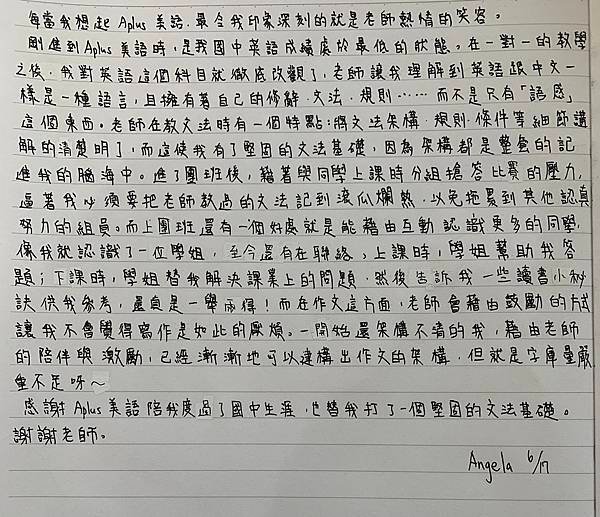 每當我想起 Aplus 美語,最令我印象深刻的就是老師熱情的笑容。
剛進到 Aplus 美語時,是我國中英語成績處於最低的狀態。在一對一的教學
之後,我對英語這個科目就徹底改觀了,老師讓我理解到英語跟中文一
樣是一種語言,且擁有著自己的修辭、文法、規則……而不是只有「語感」
這個東西。老師在教文法時有一個特點:將文法架構、規則、條件等細節講
解的清楚明了,而這使我有了堅固的文法基礎,因為架構都是整套的記
進我的腦海中。進了團班後,藉著與同學上課時分組搶答比賽的壓力,
逼著我必須要把老師教過的文法記到滾瓜爛熟,以免拖累到其他認真
努力的組員。而上團班還有一個好處就是能藉由互動認識更多的同學,
像我就認識了一位學姐,至今還有在聯絡。上課時,學姐幫助我答
題;下課時,學姐替我解決課業上的問題,然後告訴我一些讀書小秘
訣供我參考,還真是一舉兩得!而在作文這方面,老師會藉由鼓勵的方式
讓我不會覺得寫作是如此的厭煩。一開始還架構不清的我,藉由老師
的陪伴與激勵,已經漸漸地可以建構出作文的架構,但就是字庫量嚴
重不足呀～
感謝 Aplus 美語陪我度過了國中生涯,也替我打了一個堅固的文法基礎。
謝謝老師。
Angela 6/17